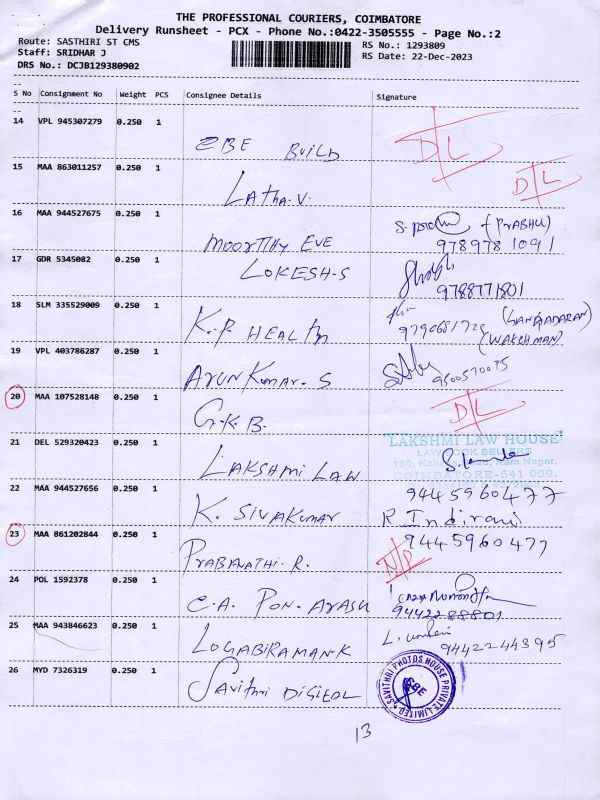 THE PROFESSIONAL COURIERS, COIMBATORE
Delivery Runsheet - PCX - Phone No.:0422-3505555 - Page No.:2
Route: SASTHIRI ST CMS
RS No.: 1293809
Staff: SRIDHAR J
RS Date: 22-Dec-2023
DRS No.: DCJB129380902
S No Consignment No Weight PCS Consignee Details Signature
14 VPL 945307279 0.250 1
EBE BUILD D/L
15 MAA 863011257 0.250 1
LATHA.V. D/L
16 MAA 944527675 0.250 1
MOORTHY EVE (PRABHU)
9789781091
17 GDR 5345082 0.250 1
LOKESH-S
9788771801
18 SLM 335529009 0.250 1
K.P. HEALTH (GANGADARAN)
(WATCHMAN)
19 VPL 403786287 0.250 1
ARUN Kumar. S 9500570075
20 MAA 107528148 0.250 1
G.K.B. D/L
21 DEL 529320423 0.250 1
LAKSHMI LAW
LAKSHMI LAW HOUSE
LAW BOOK SELLERS
Ram Nagar,
COIMBATORE-641 009.
22 MAA 944527656 0.250 1
9445960477
K. SIVAKUMAR R. Indirani
23 MAA 861202844 0.250 1
9445960477
PRABANATHI R. N/P
24 POL 1592378 0.250 1
C.A. PON. ARASU
9442288801
25 MAA 943846623 0.250 1
LOGABIRAMAN-K
9442244395
26 MYD 7326319 0.250 1
Savithri DIGITAL
SAVITHRI PHOTOS HOUSE PRIVATE LIMITED
CBE
13